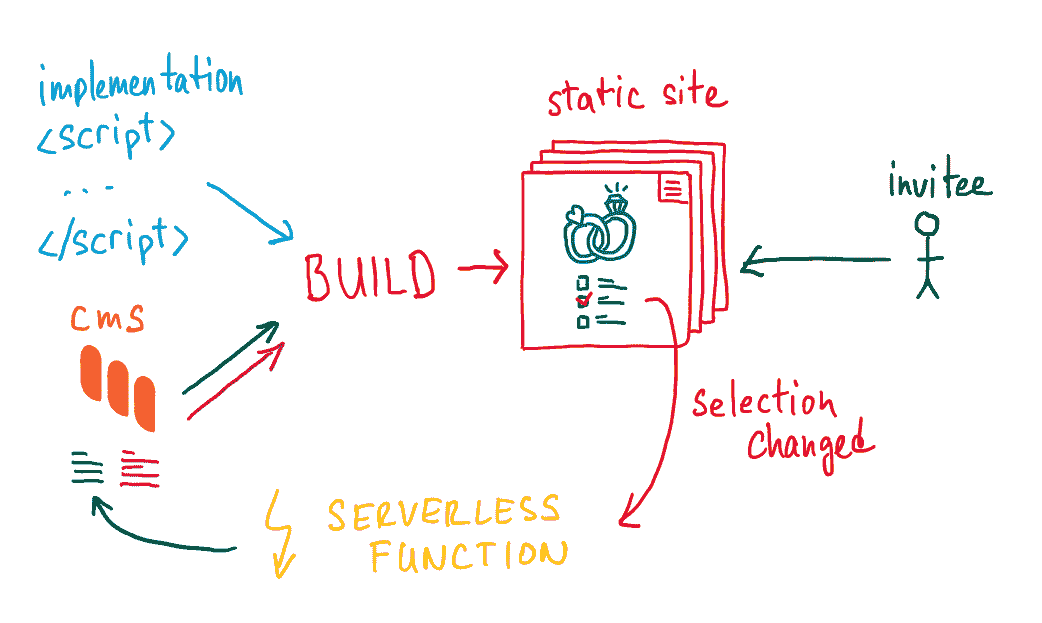 implementation
<script>
...
</script>
cms
BUILD
static site
invitee
selection
changed
SERVERLESS
FUNCTION